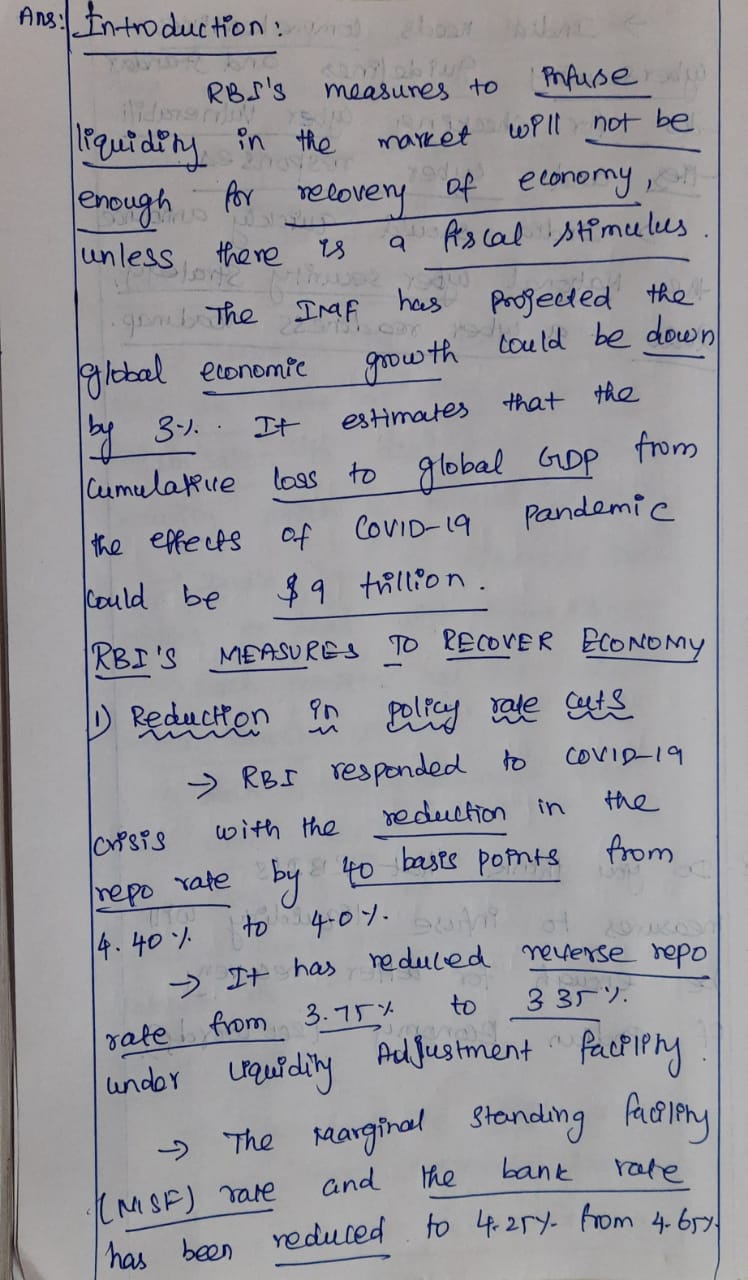 Ans: Introduction:
RBI's measures to infuse
liquidity in the market will not be
enough for recovery of economy,
unless there is a fiscal stimulus.
The IMF has projected the
global economic growth could be down
by 3%. It estimates that the
cumulative loss to global GDP from
the effects of COVID-19 pandemic
could be $9 trillion.
RBI'S MEASURES TO RECOVER ECONOMY
1) Reduction in policy rate cuts
→ RBI responded to COVID-19
crisis with the reduction in the
repo rate by 40 basis points from
4.40% to 4.0%.
→ It has reduced reverse repo
rate from 3.75% to 3.35%.
under Liquidity Adjustment facility.
→ The Marginal Standing facility
(MSF) rate and the bank rate
has been reduced to 4.25% from 4.65%